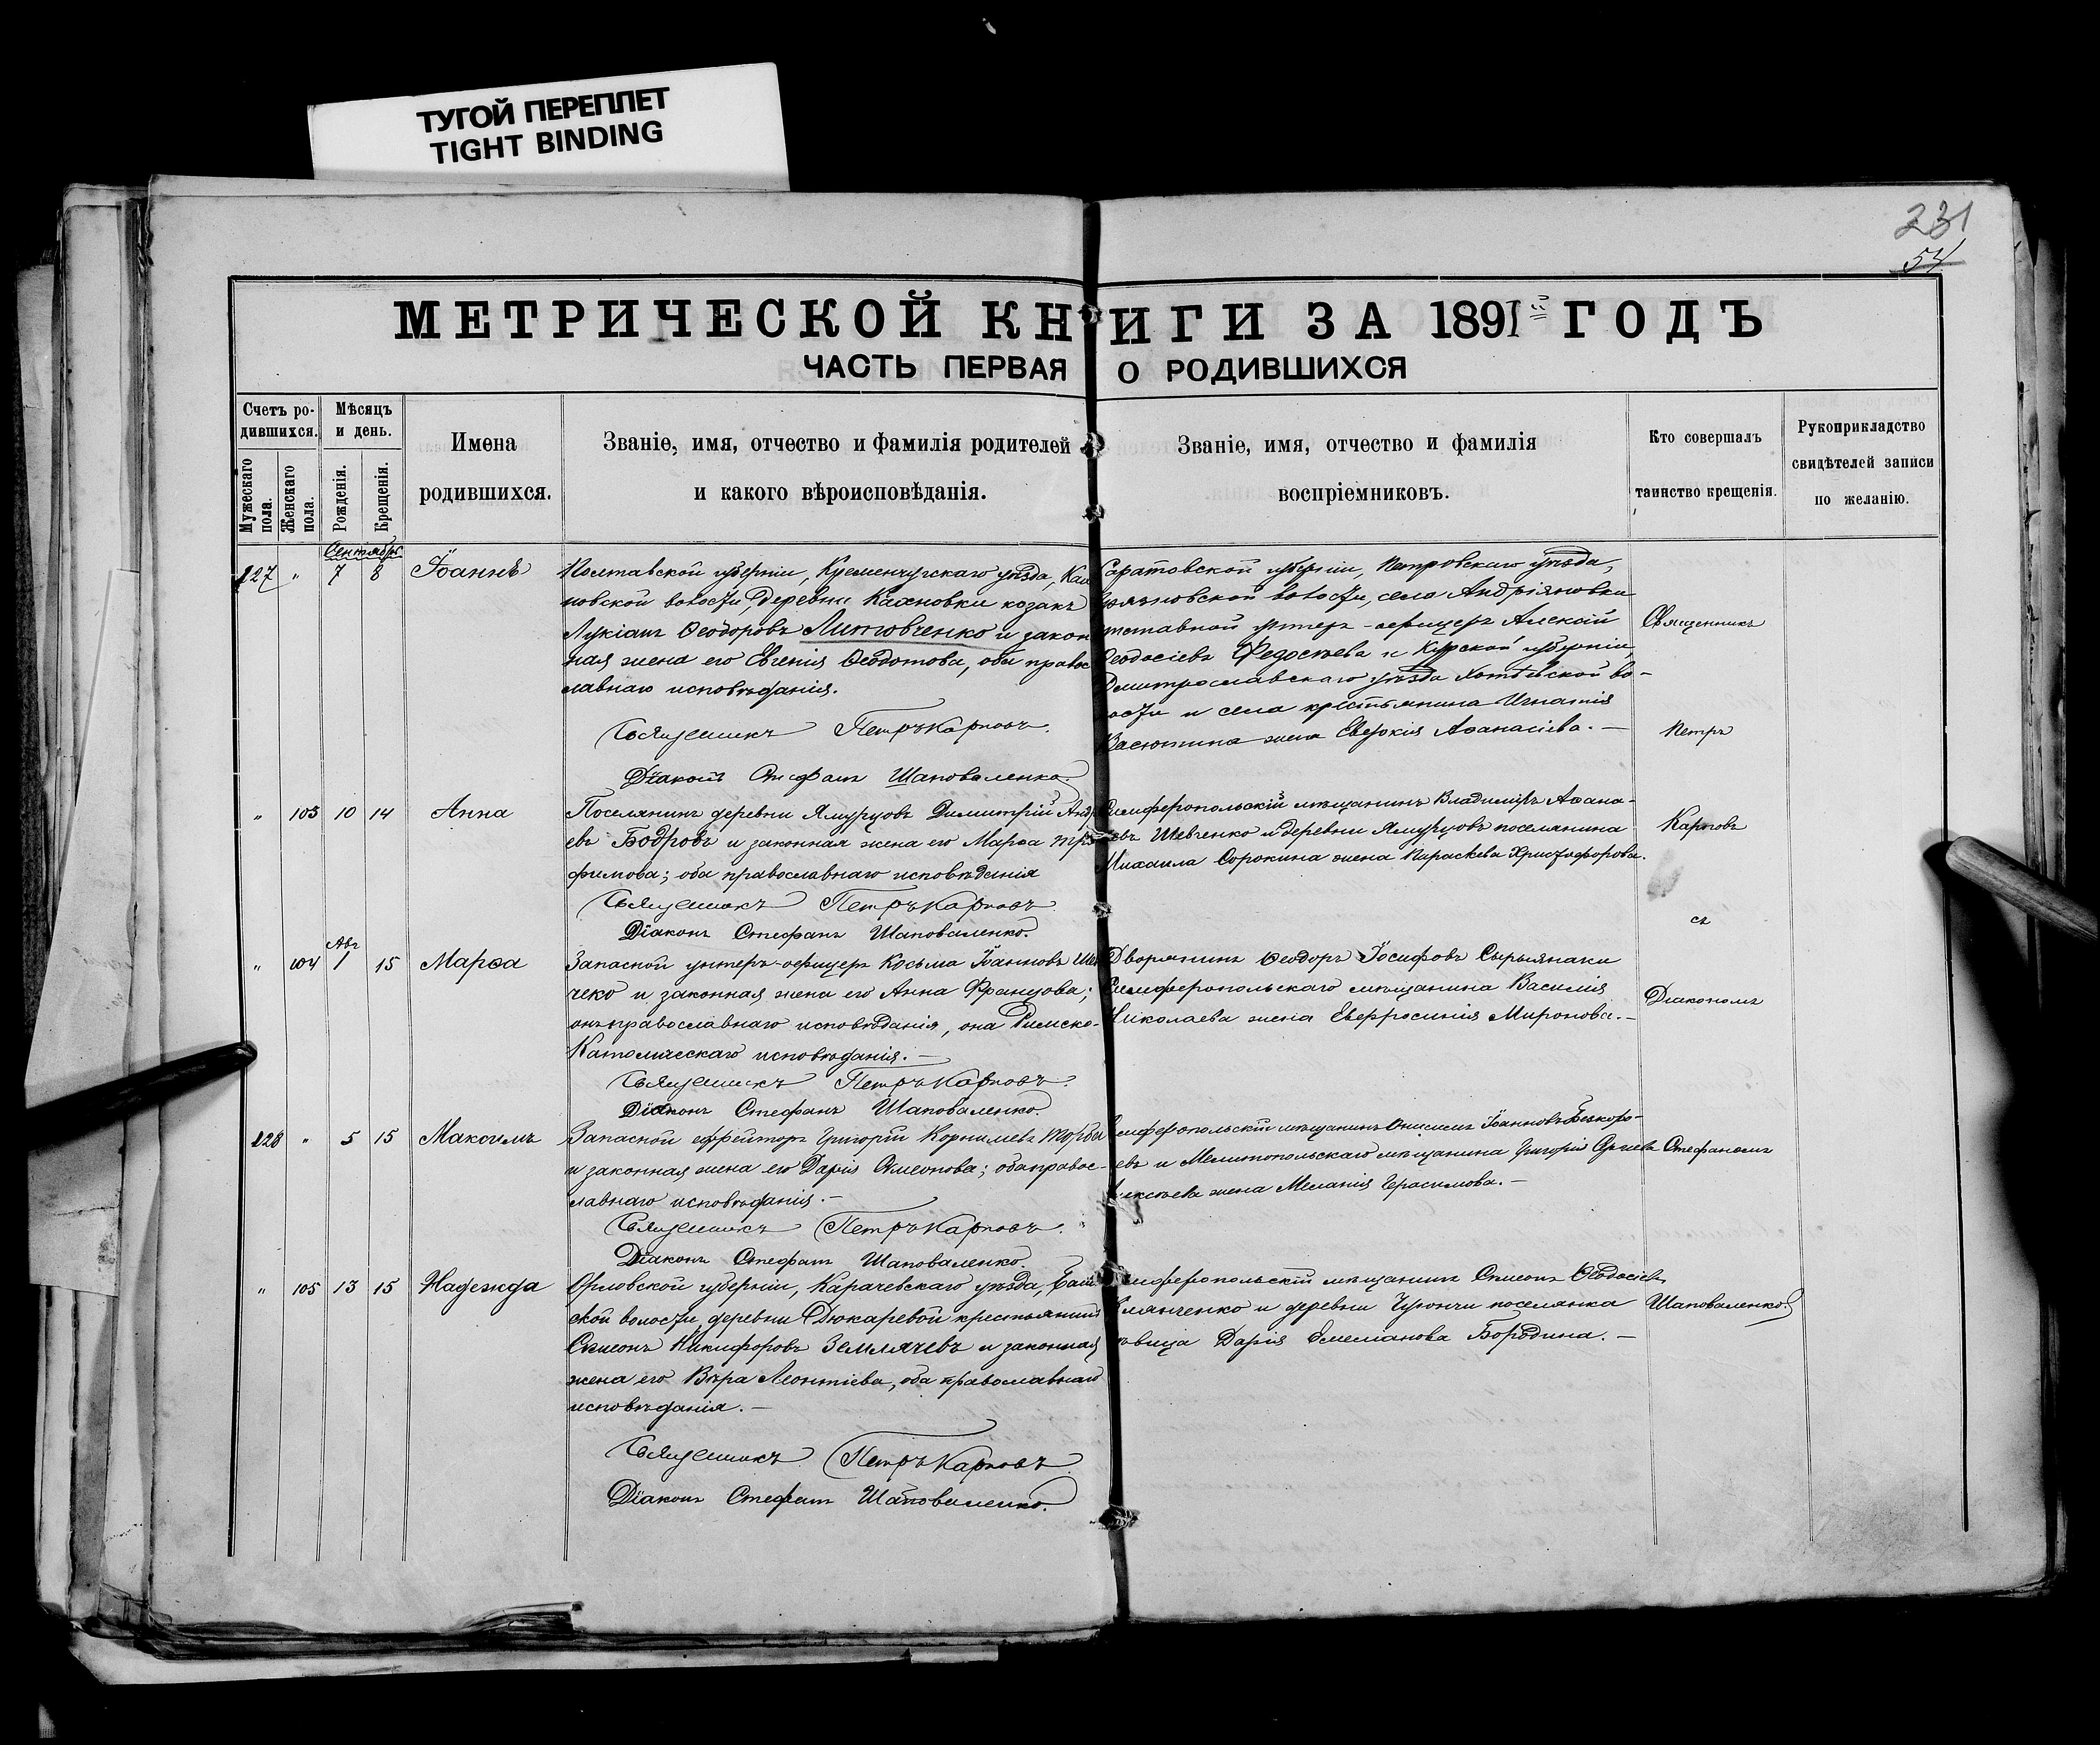 ТУГОЙ ПЕРЕПЛЕТ
TIGHT BINDING
231
54
МЕТРИЧЕСКОЙ КНИГИ ЗА 1891й ГОДЪ
ЧАСТЬ ПЕРВАЯ О РОДИВШИХСЯ
Счетъ ро-
дившихся.
Мужескаго пола.
Женскаго пола.
Мѣсяцъ
и день.
Рожденія.
Крещенія.
Имена
родившихся.
Званіе, имя, отчество и фамилія родителей
и какого вѣроисповѣданія.
Званіе, имя, отчество и фамилія
воспріемниковъ.
Кто совершалъ
таинство крещенія.
Рукоприкладство
свидѣтелей записи
по желанію.
Сентябрь
127 " 7 8 Іоаннъ
Полтавской губерніи, Кременчугскаго уѣзда,
новской волости, деревни Кахновки козакъ
Лукіанъ Ѳеодоровъ Литовченко и закон
ная жена его Евгенія Ѳеодотова, оба правос
лавнаго исповѣданія.
Священникъ Петръ Карповъ.
Діаконъ Стефанъ Шаповаленко.
Саратовской губерніи, Петровскаго уѣзда,
волости, села Андріяновки
отставной унтеръ-офицеръ Алексій
Ѳеодосіевъ Федосѣева и Курской губерніи,
Дмитрославскаго уѣзда Хотѣевской во-
лости и села крестьянина Игнатія
Васютина жена Евдокія Аѳанасіева.—
" 103 10 14 Анна
Поселянинъ деревни Ямурцовъ Димитрій
евъ Бодровъ и законная жена его Марѳа Тро
фимова; оба православнаго исповѣданія
Священникъ Петръ Карповъ
Діаконъ Стефанъ Шаповаленко.
Симферопольскій мѣщанинъ Владиміръ Аѳана-
евъ Шевченко и деревни Ямурцовъ поселянина
Михаила Сорокина жена Параскева Христофорова.
Авг
" 104 1 15 Марѳа
Запасной унтеръ-офицеръ Косьма Іоанновъ Шев
ченко и законная жена его Анна Францова;
онъ православнаго исповѣданія, она Римско-
Католическаго исповѣданія.—
Священникъ Петръ Карповъ.
Діаконъ Стефанъ Шаповаленко.
Дворянинъ Ѳеодоръ Іосифовъ Сырьянаки
Симферопольскаго мѣщанина Василія
Николаева жена Евфросинія Миронова.—
128 " 5 15 Максимъ
Запасной ефрейторъ Григорій Корниліевъ Торба
и законная жена его Дарія Симеонова; оба правос-
лавнаго исповѣданія.—
Священникъ Петръ Карповъ.
Діаконъ Стефанъ Шаповаленко.
Симферопольскій мѣщанинъ Онисимъ Іоанновъ
евъ и Мелитопольскаго мѣщанина Григорія
Алексѣева жена Меланія Герасимова.—
" 105 13 15 Надежда
Орловской губерніи, Карачевскаго уѣзда,
ской волости, деревни Дюкаревой крестьянинъ
Симеонъ Никифоровъ Землячевъ и законная
жена его Вѣра Леонтіева, оба православнаго
исповѣданія.—
Священникъ Петръ Карповъ
Діаконъ Стефанъ Шаповаленко.
Симферопольскій мѣщанинъ Симеонъ Ѳеодосіевъ
и деревни Чуюнчи поселянка
дѣвица Дарія Емеліанова Бородина.—
Священникъ
Петръ
Карповъ
съ
Діакономъ
Стефаномъ
Шаповаленко.